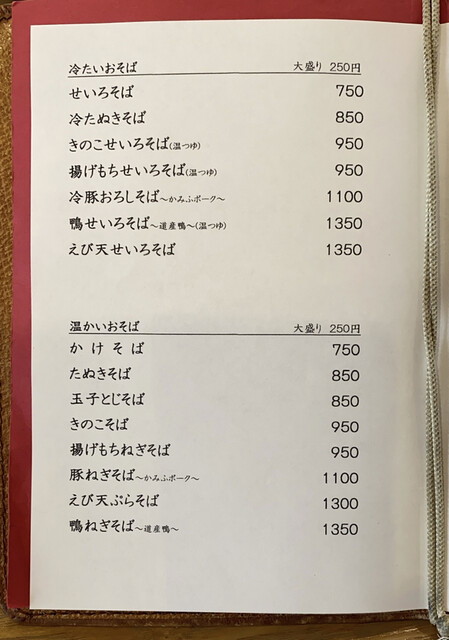 冷たいおそば 大盛り 250円
せいろそば 750
冷たぬきそば 850
きのこせいろそば(温つゆ) 950
揚げもちせいろそば(温つゆ) 950
冷豚おろしそば～かみふポーク～ 1100
鴨せいろそば～道産鴨～(温つゆ) 1350
えび天せいろそば 1350
温かいおそば 大盛り 250円
かけそば 750
たぬきそば 850
玉子とじそば 850
きのこそば 950
揚げもちねぎそば 950
豚ねぎそば～かみふポーク～ 1100
えび天ぷらそば 1300
鴨ねぎそば～道産鴨～ 1350